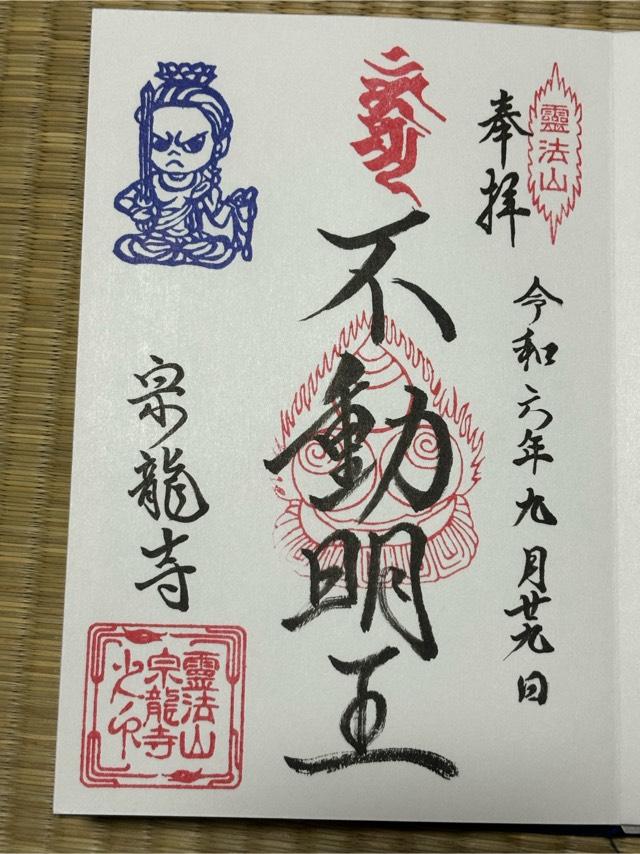 靈法山
奉拝
令和六年九月廿九日
不動明王
宗龍寺
靈法山
宗龍寺